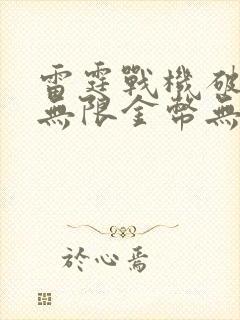 雷霆戰機破
無限金幣無
於心焉